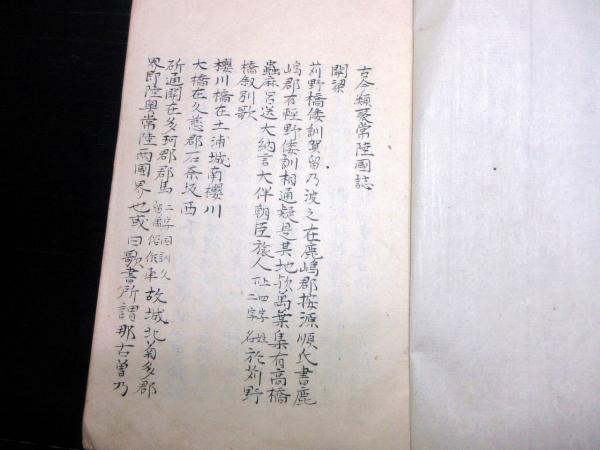 古今類聚常陸國誌
關梁
苅野橋倭訓賀留乃波之在鹿嶋郡按源順氏書鹿
嶋郡有輕野倭訓相通疑是其地歟萬葉集有高橋
蟲麻呂送大納言大伴朝臣旅人正四字姓二字名於苅野
橋叙別歌
櫻川橋在土浦城南櫻川
大橋在久慈郡石奈坂西
斫通關在多珂郡郡馬二字因訓久留番俗作車故城北菊多郡
界即陸奥常陸兩國界也或曰歌書所謂那古曽乃